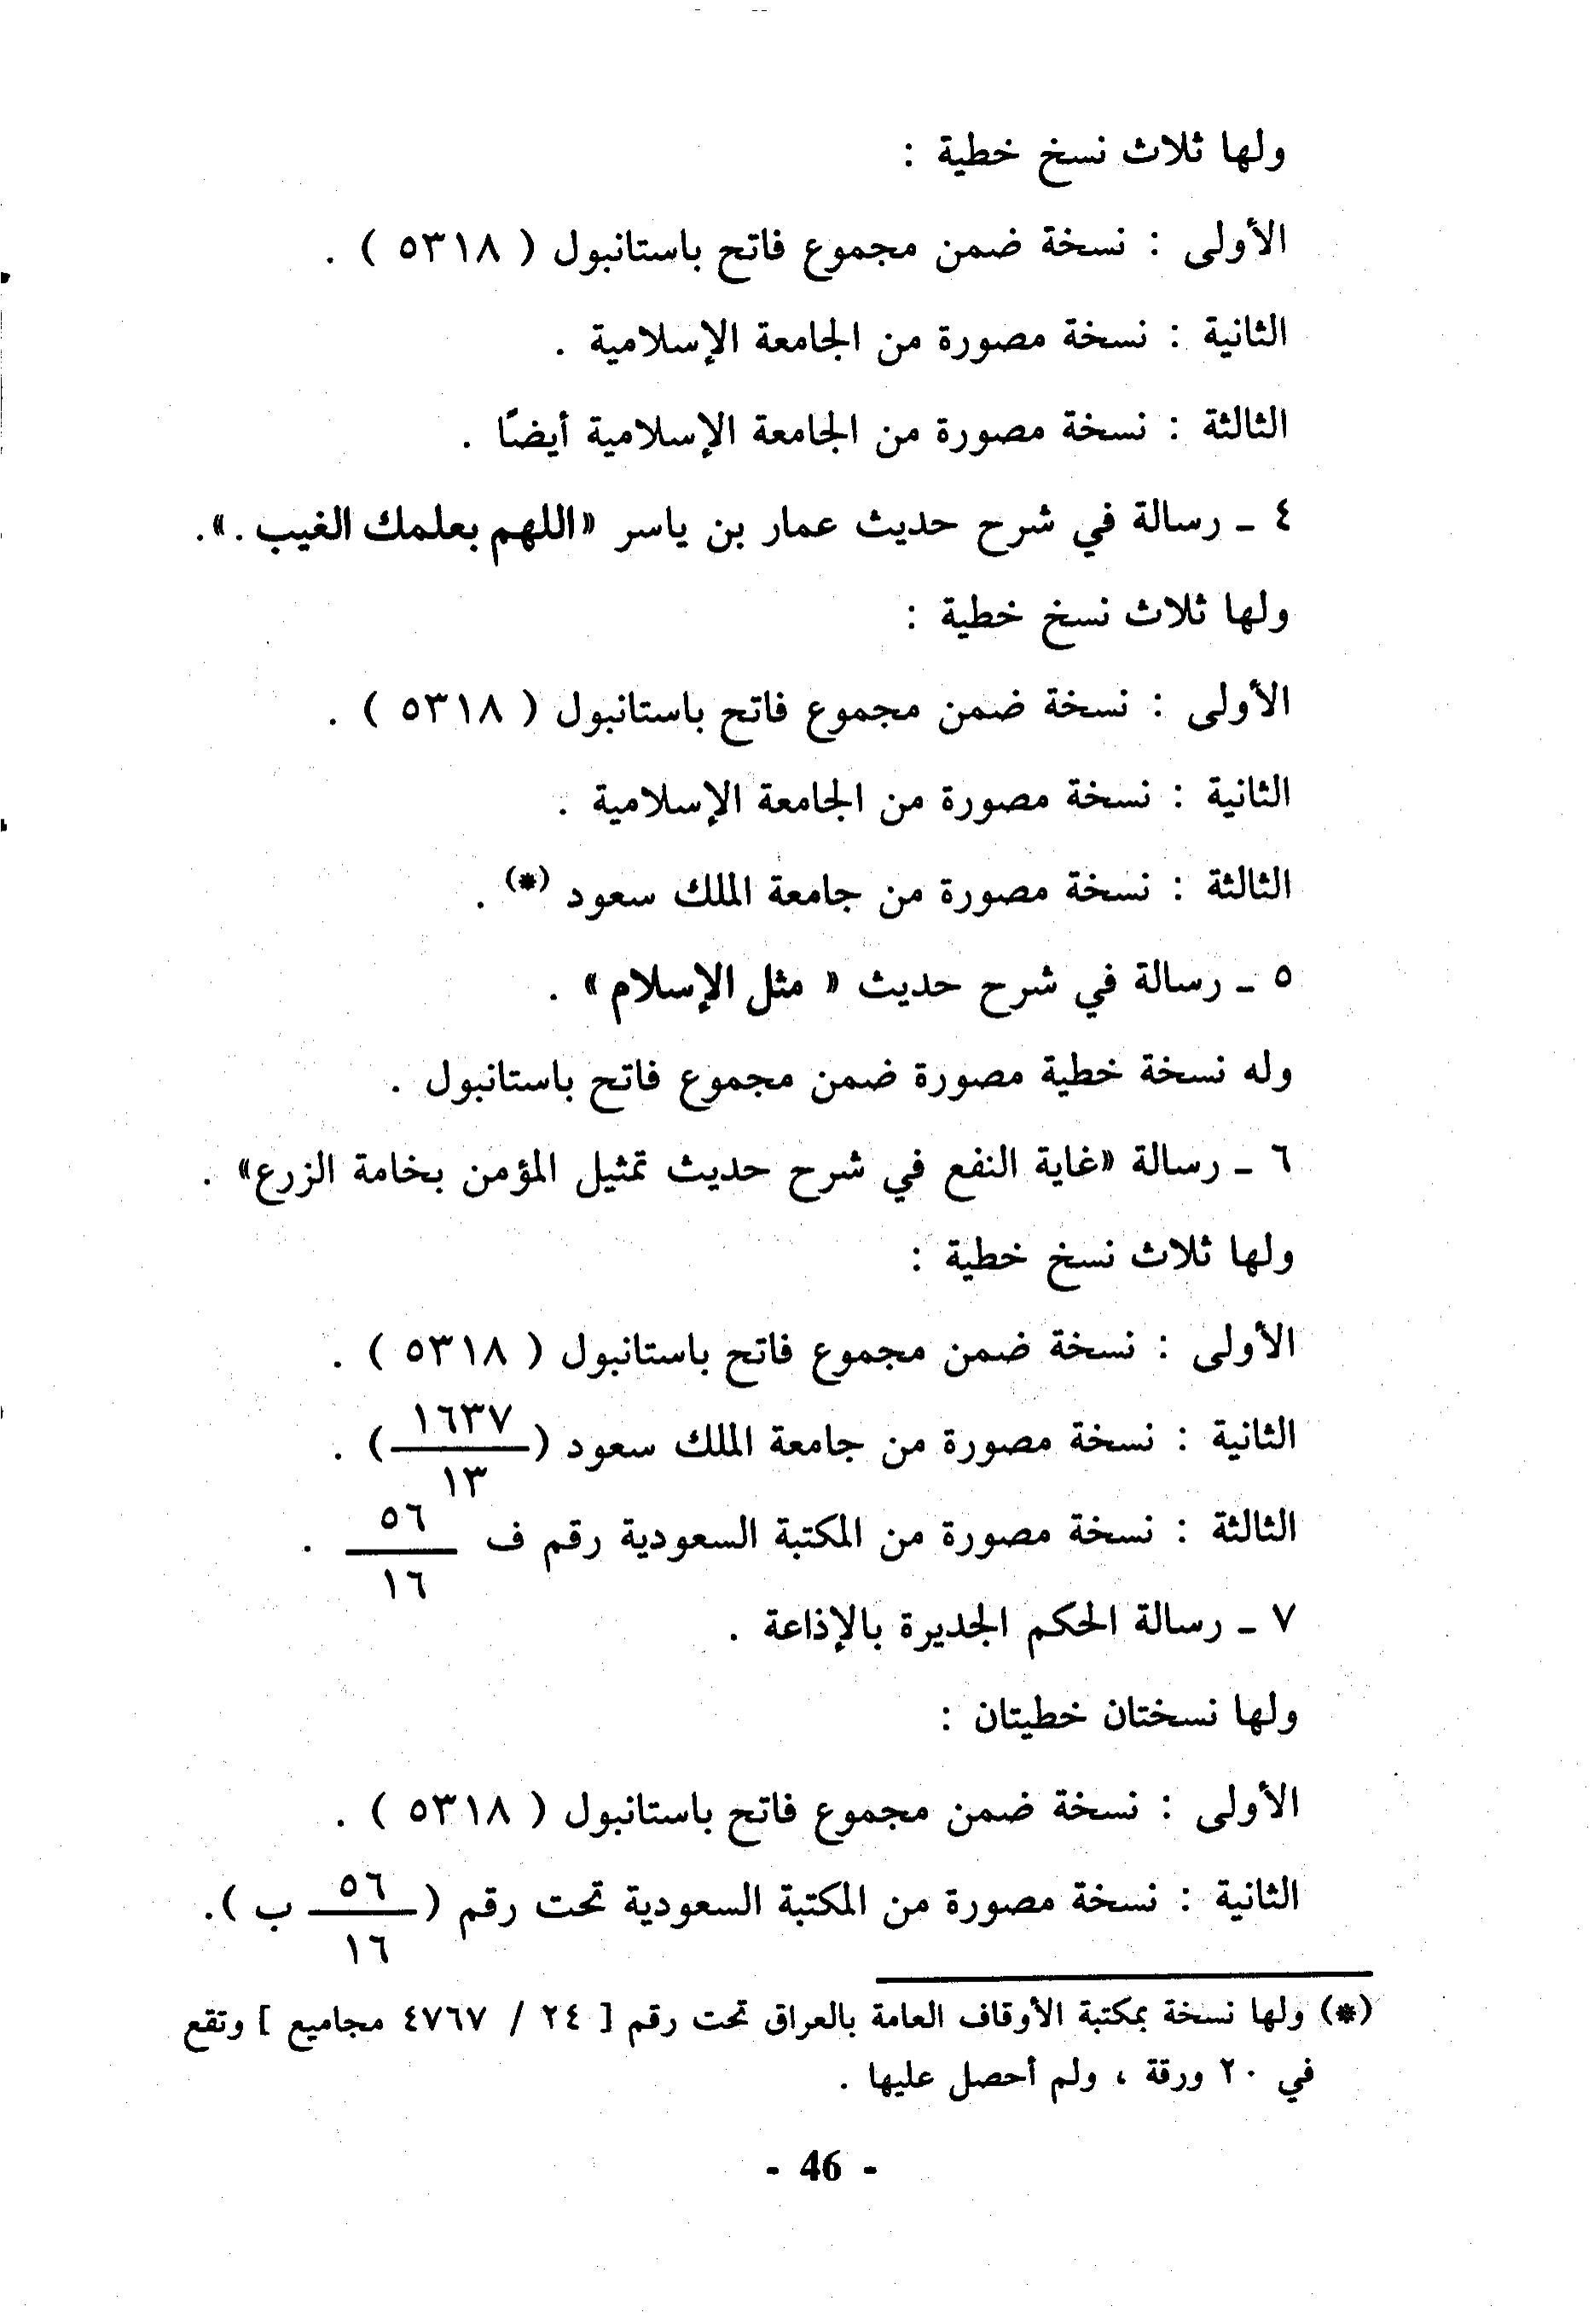 ولها ثلاث نسخ خطية :
الأولى : نسخة ضمن مجموع فاتح باستانبول ( ٥٣١٨ ) .
الثانية : نسخة مصورة من الجامعة الإسلامية .
الثالثة : نسخة مصورة من الجامعة الإسلامية أيضًا .
٤ ـ رسالة في شرح حديث عمار بن ياسر «اللهم بعلمك الغيب .».
ولها ثلاث نسخ خطية :
الأولى : نسخة ضمن مجموع فاتح باستانبول ( ٥٣١٨ ) .
الثانية : نسخة مصورة من الجامعة الإسلامية .
الثالثة : نسخة مصورة من جامعة الملك سعود (*) .
٥ ـ رسالة في شرح حديث « مثل الإسلام » .
وله نسخة خطية مصورة ضمن مجموع فاتح باستانبول .
٦ ـ رسالة «غاية النفع في شرح حديث تمثيل المؤمن بخامة الزرع» .
ولها ثلاث نسخ خطية :
الأولى : نسخة ضمن مجموع فاتح باستانبول ( ٥٣١٨ ) .
الثانية : نسخة مصورة من جامعة الملك سعود (١٦٣٧/١٣) .
الثالثة : نسخة مصورة من المكتبة السعودية رقم ف ٥٦/١٦ .
٧ ـ رسالة الحكم الجديرة بالإذاعة .
ولها نسختان خطيتان :
الأولى : نسخة ضمن مجموع فاتح باستانبول ( ٥٣١٨ ) .
الثانية : نسخة مصورة من المكتبة السعودية تحت رقم (٥٦/١٦ ب ).
(*) ولها نسخة بمكتبة الأوقاف العامة بالعراق تحت رقم [ ٢٤ / ٤٧٦٧ مجاميع ] وتقع
في ٢٠ ورقة ، ولم أحصل عليها .
- 46 -